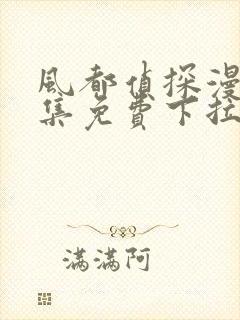 風都偵探漫
集免費下拉
滿滿阿